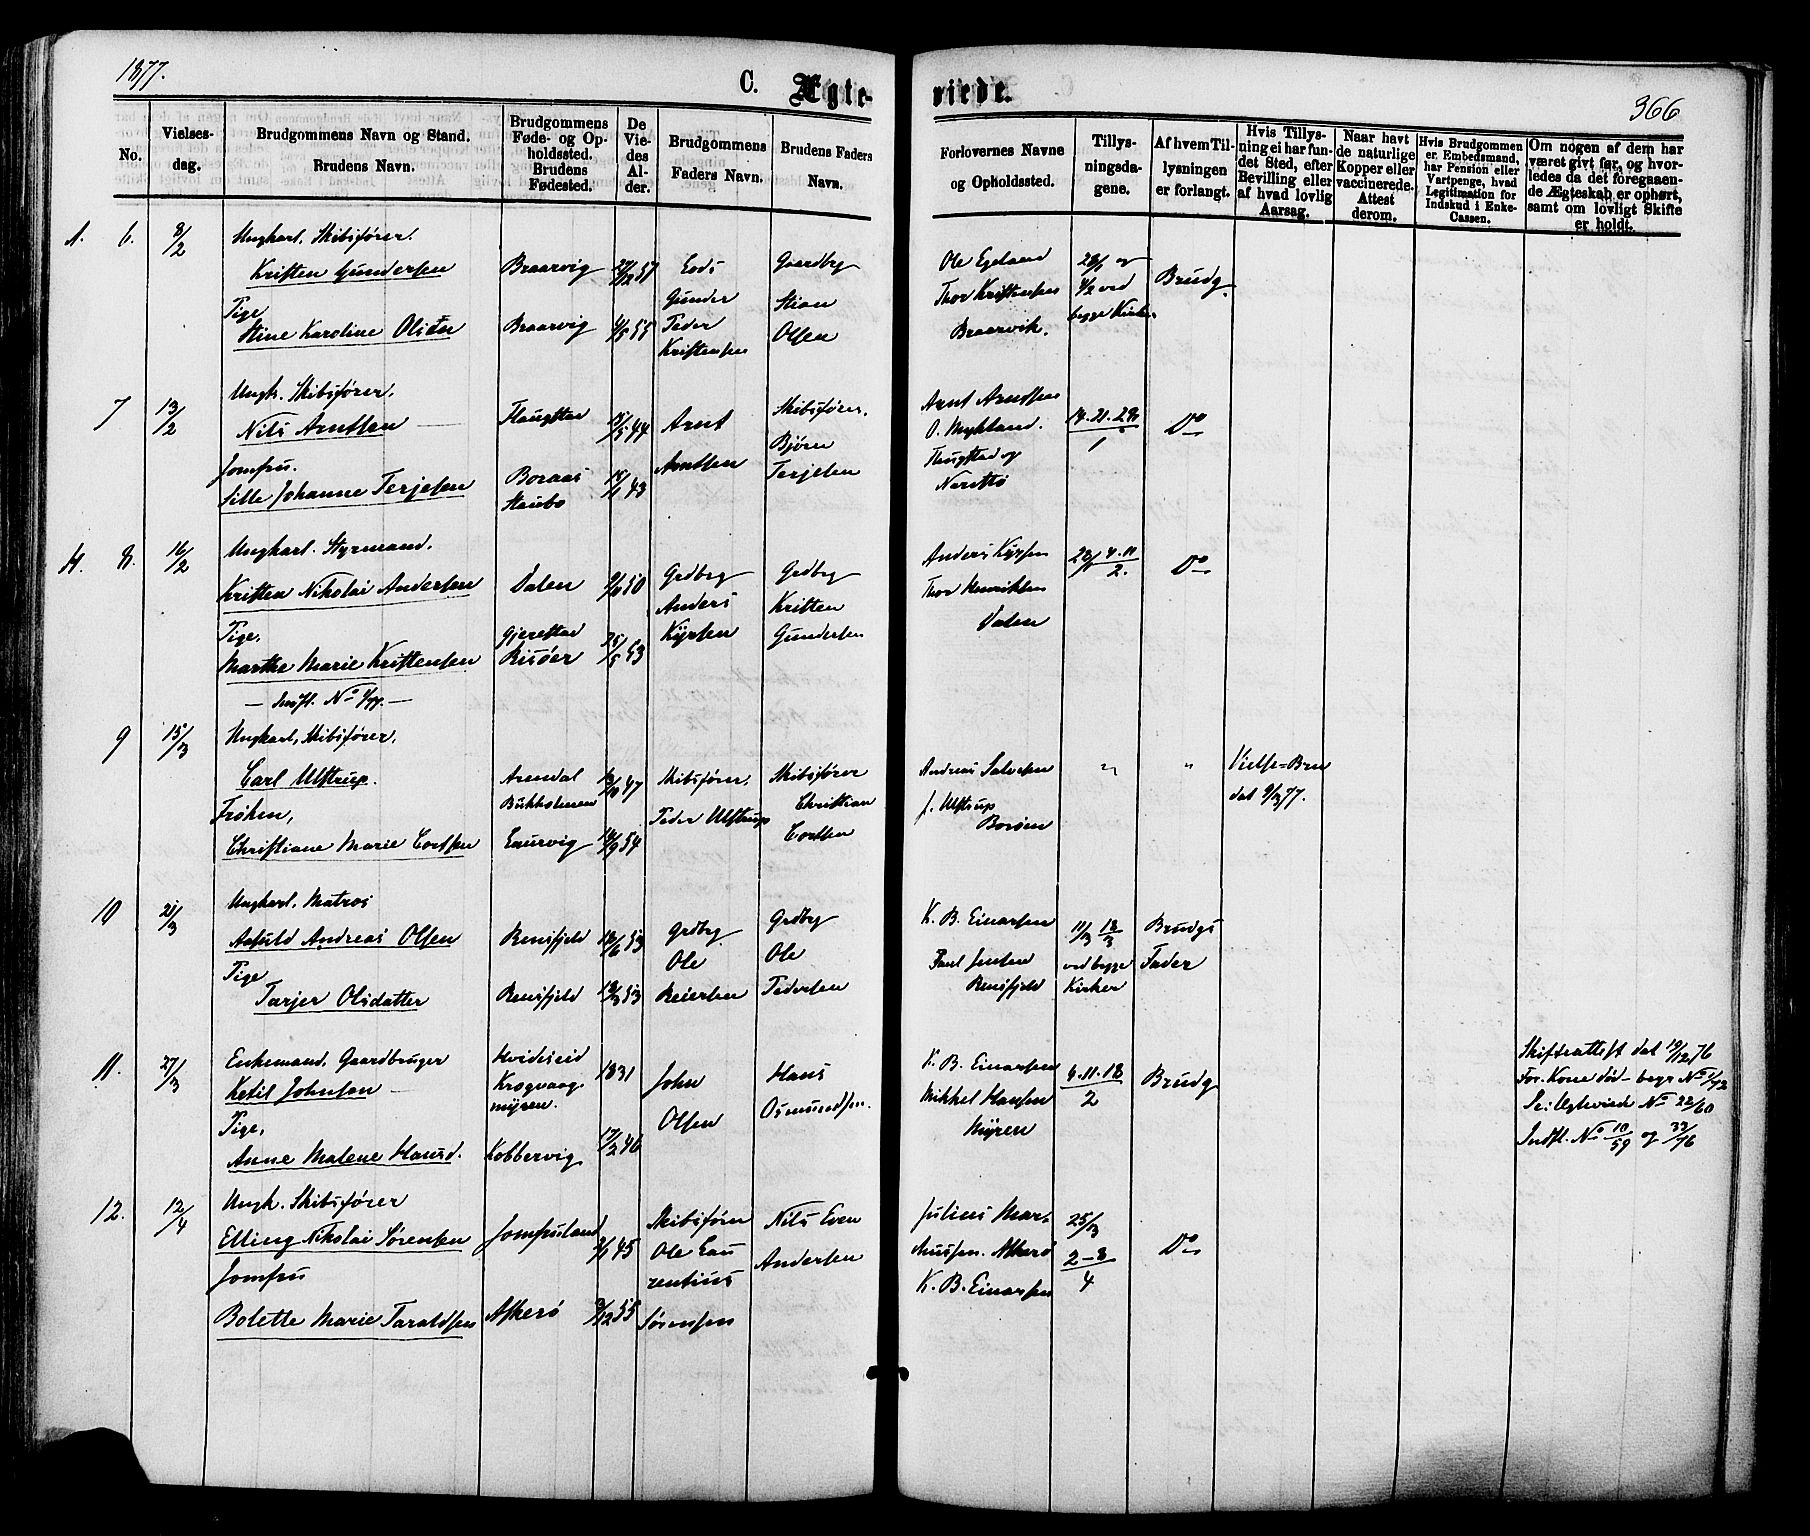 1877.
C. Ægteviede.
366
No.
Vielsesdag.
Brudgommens Navn og Stand.
Brudens Navn.
Brudgommens Føde- og Opholdssted. Brudens Fødested.
De Viedes Alder.
Brudgommens Faders Navn.
Brudens Faders Navn.
Forlovernes Navne og Opholdssted.
Tillysningsdagene.
Af hvem Tillysningen er forlangt.
Hvis Tillysning ei har fundet Sted, efter Bevilling eller af hvad lovlig Aarsag.
Naar havt de naturlige Kopper eller vaccinerede. Attest derom.
Hvis Brudgommen er Embedsmand, har Pension eller Vartpenge, hvad Legitimation for Indskud i Enke-Cassen.
Om nogen af dem har været givt før, og hvorledes da det foregaaende Ægteskab er ophørt, samt om lovligt Skifte er holdt.
6. 8/2
Ungkarl. Skibsfører.
Kristen Gundersen
Braarvig
Gunder
Gaardbr
Stian
Ole Egeland
Thor Kristensen
Braarvik.
28/1 og
4/2 ved
begge Kirker
Brudg.
Pige
Stine Karoline Olsen
Braarvig
Peder
Kristensen
Olsen
7 13/2
Ungk. Skibsfører.
Nils Arntsen
15/5 44
Arnt
Arntsen
Skibsfører.
Bjørn
Terjesen
Arnt Arntsen
O. Myhland.
14. 21. 28
1
Do
Jomfru.
Sille Johanne Terjesen
Boraas
Staubø
43
8. 16/2
Ungkarl. Styrmand.
Kristen Nikolai Andersen
Dalen
50
Grdbr
Anders
Grdbr
Kristen
Gundersen
Thor Henriksen
Dalen
28/1 4. 11
2.
Do
Pige,
Marthe Marie Kristensen
Gjerestad
Risøer
25/5 53
9 15/3
Ungkarl, Skibsfører.
Carl Ulstrup.
Arendal
Bukholmen
47
Skibsfører.
Peder Ulstrup
Skibsfører
Christian
Cortsen
Andreas Salvesen
J. Ulstrup
Borøen
"
"
Vielse-Brev
dat 9/3 77.
Frøken,
Christiane Marie Cortsen
Laurvig
54
10 21/3
Ungkarl. Matros
Aasuld Andreas Olsen
Rensfjeld
53
Grdbr
Ole
Reiersen
Grdbr
Ole
Pedersen
K. B. Einarsen
Paul Jensen
Rensfjeld
11/3 18/3
ved begge
Kirker
Brudgs
Fader
Pige
Tarjer Olsdatter
Rensfjeld
53
11. 27/3
Enkemand. Gaardbruger
Ketil Johnsen
Hvideseid
Krogvaag
myren.
1831
John
Olsen
Hans
Osmundsen.
K. B. Einarsen
Mikkel Hansen
Myren
4. 11. 18
2
Brudg
Skifteattest dat 19/12 76
For. Kone død - begr No 1/72
Se: Ægteviede No 22/60
Indfl. No 10/59 og 33/76
Pige,
Anne Malene Hansd.
Kobbervig
17/2 46
12. 12/4
Ungk. Skibsfører
Elling Nikolai Sørensen
Jomfruland
45
Skibsfører
Ole Lau
rentius
Sørensen
Nils Even
Andersen
Julius Mar-
Askerø
K. B. Einarsen
25/3
2-8
4
Do
Jomfru
Bolette Marie Taraldsen
Askerø
55